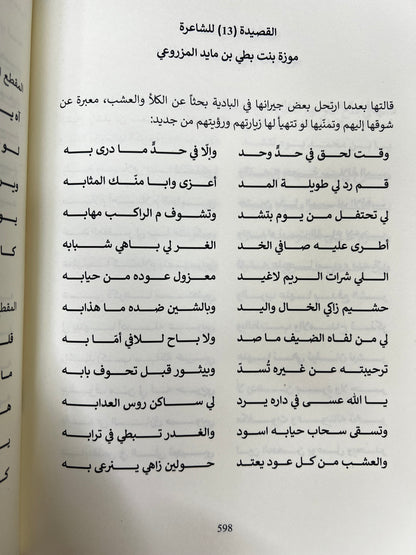 القصيدة (13) للشاعرة
موزة بنت بطي بن مايد المزروعي
قالتها بعدما ارتحل بعض جيرانها في البادية بحثاً عن الكلأ والعشب، معبرة عن
شوقها إليهم وتمنّيها لو تتهيأ لها زيارتهم ورؤيتهم من جديد:
وقت لحق في حدٍّ وحد وإلّا في حدٍّ ما درى به
قم رد لي طويلة المد أعزى وابا منّك المثابه
لي تحتفل من يوم بتشد وتشوف م الراكب مهابه
أطرى عليه صافي الخد الغر لي باهي شبابه
اللي شرات الريم لاغيد معزول عوده من حيابه
حشيم زاكي الخال واليد وبالشين ضده ما هذابه
لي من لفاه الضيف ما صد ولا باح للافي أمّا به
ترحيبته عن غيره تُسدّ ويبثور قبل تحوف بابه
يا الله عسى في داره يرد لي ساكن روس العدابه
وتسقى سحاب حيابه اسود والغدر تبطي في ترابه
والعشب من كل عود يعتد حولين زاهي ينرعى به
598
المقطع
آه يـ
لو
ويـر
كـا
المقطـ
قلـ
مـا
هـا
يـ
كـا